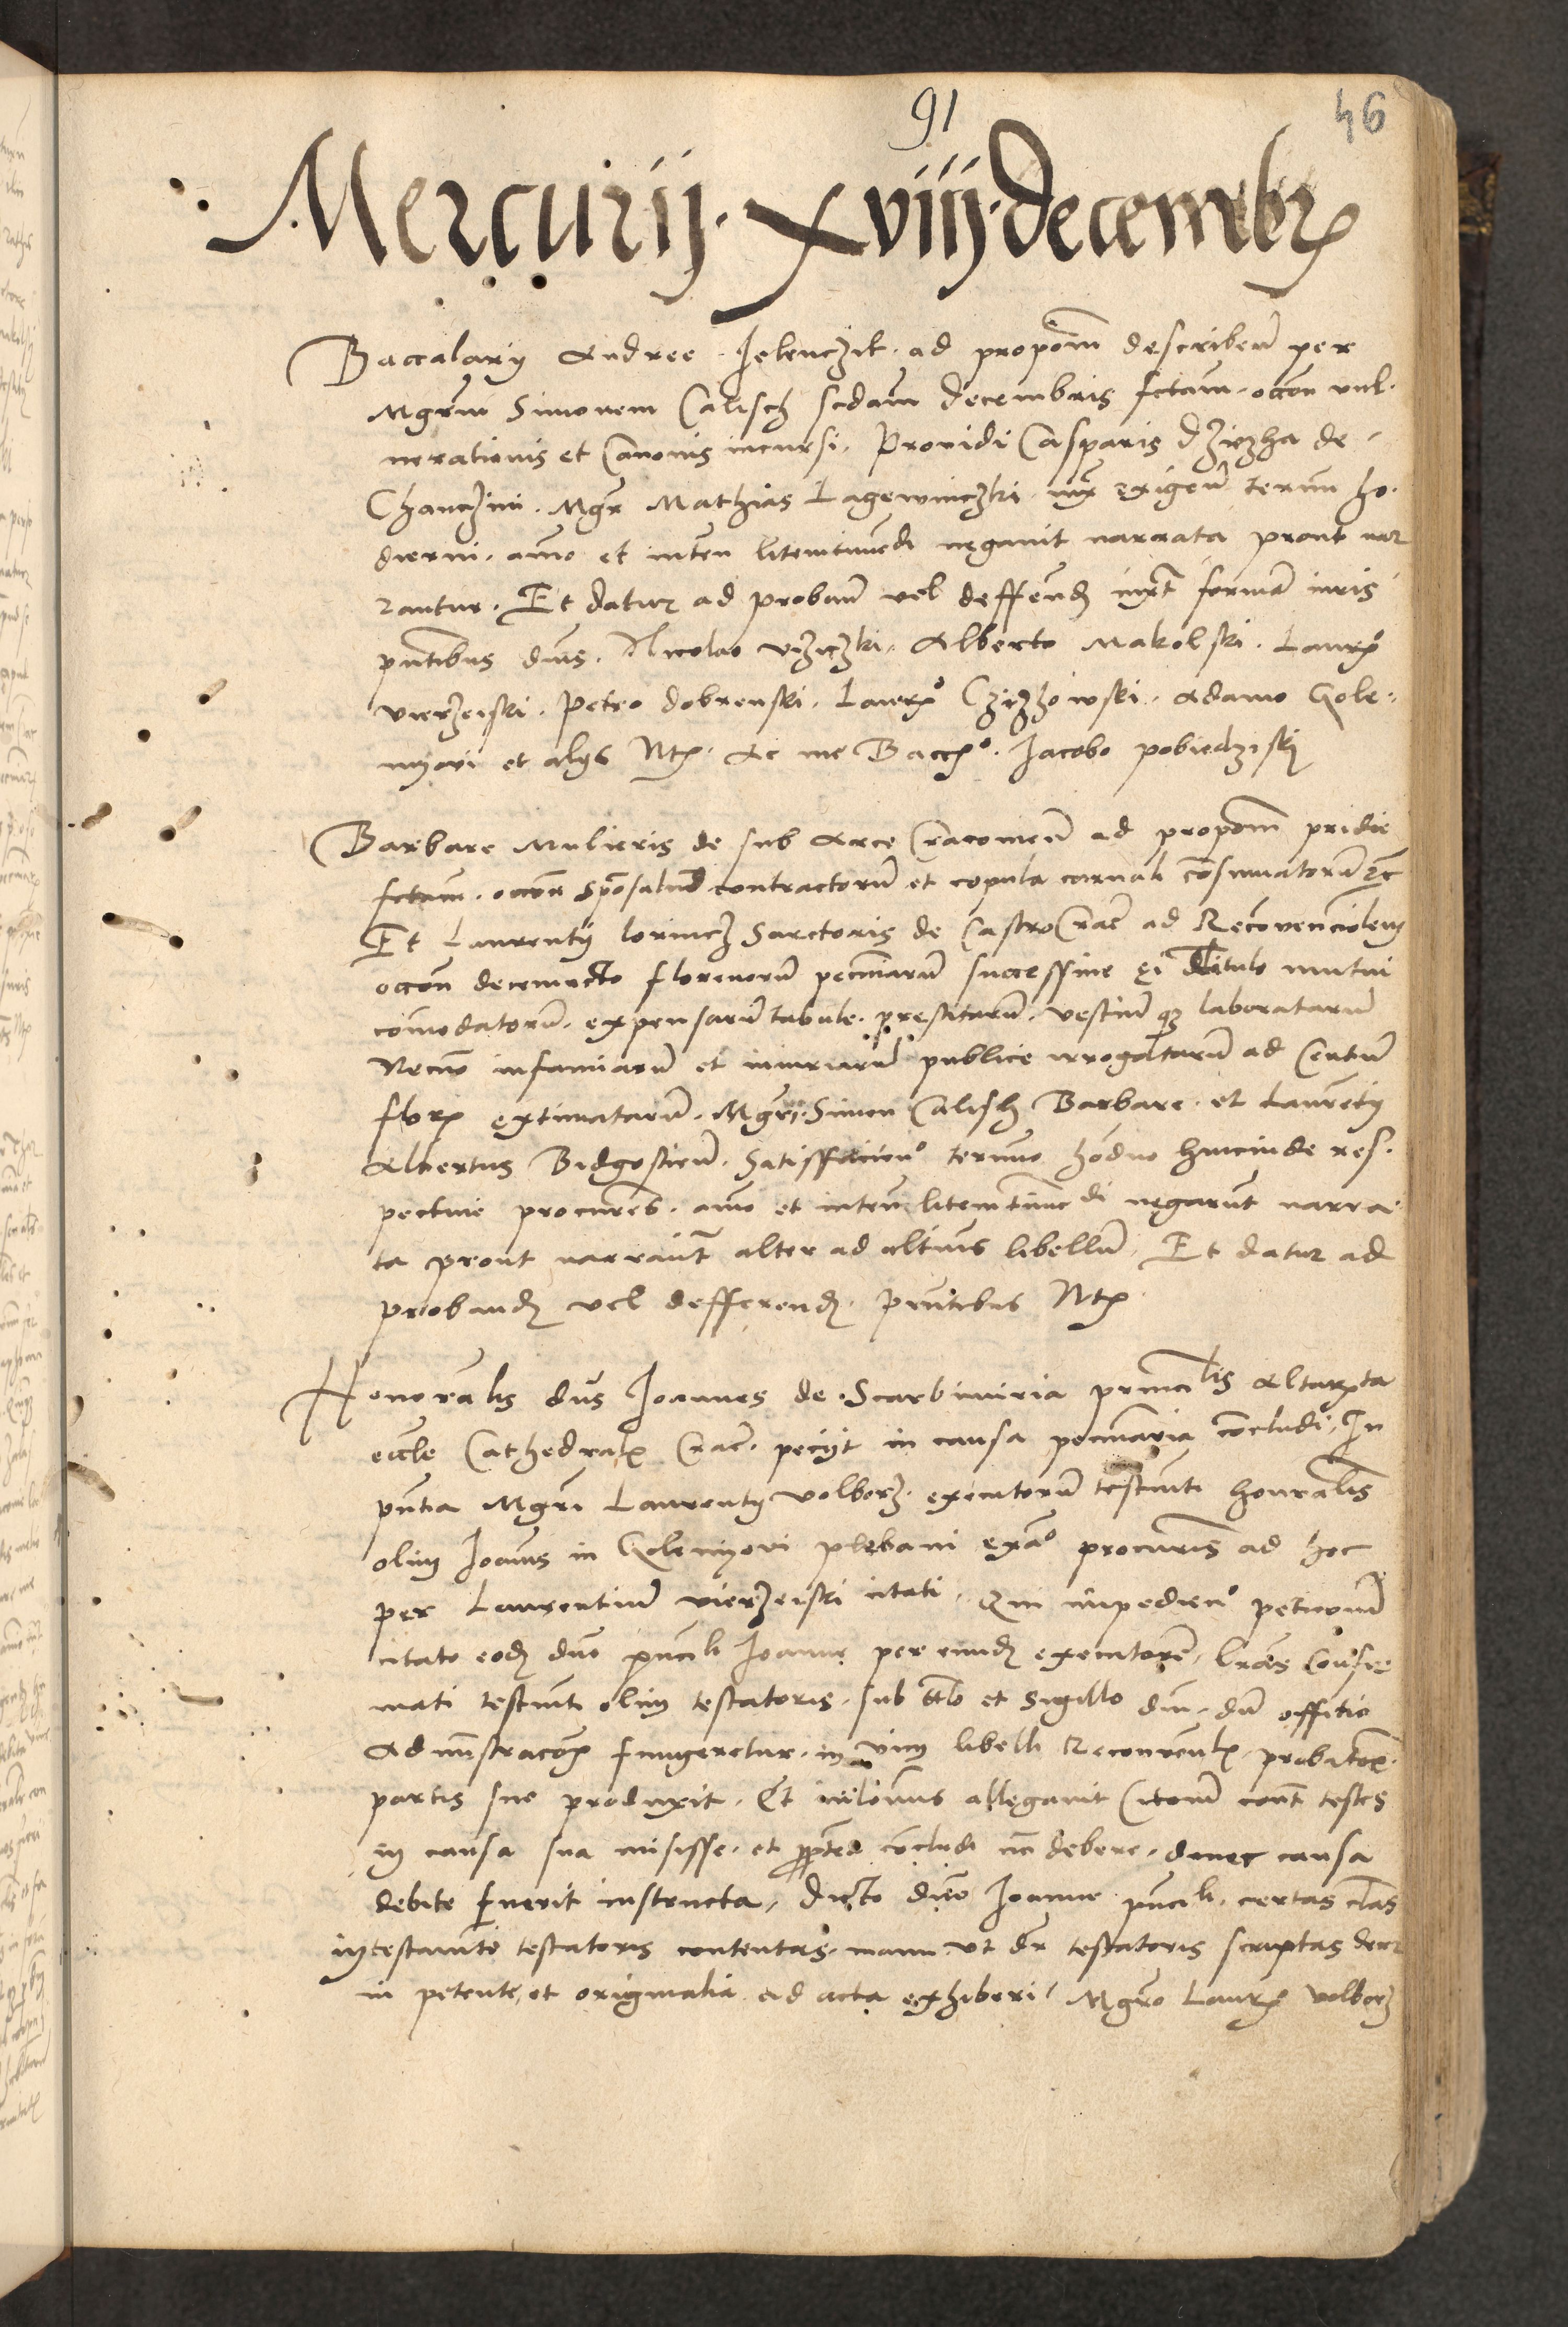 91
46
Mercurij · xviiij · decembr
Baccalarij Andree · Jelenczik · ad propom̄ describen̄ per
Mgrūm Simonem Calisch sc̄dam̄ decembris fctam̄ · occōn vul·
nerationis et Canonis incursi · Providi Casparis dzizha de
Chanczini · Mgr̄ Mathias Lagewniczki · exigen̄ termin ho·
dierni · amō et inten litem negavit narrata prout nar
rantur · Et datur ad proban̄ vel deffend̄ iuxt̄ formā iuris
pn̄tibus dnis · Nicolao Alberto Makolski · Laur̄o
vierzeiski · Petro dobrenski · Laur̄o Czizowski · Adamo Gole·
nyovi et alijs Ntr̄ · Ac me Bacc̄o · Jacobo pobiedziski
Barbare Mulieris de sub Arce Cracovien̄ ad propom̄ pridie
fctam̄ · occōn sposaliū contractorū et copula carnali cōsumatorū etc̄
Et Laurentij lorincz Sartoris de Castro Crac̄ ad Reconvencōlem
occōn decemocto florenorū pecuniarū successive ei titulo mutui
comodatorū · expensarū tabule · prestitarū · vestiū qz laboratarū
Necnō infamiarū et iniuriarū publice irrogatarū ad Centum
flor̄ extimatarū · Mgr̄i · Simon Calisch Barbare · et Laurētij
Albertus Bidgostien̄ · Satisffacien̄o termino hodno hincinde res·
pective procures · amō et inten̄ litem di negarunt narra·
ta prout narrant̄ alter ad alterius libellū · Et datur ad
proband̄ vel defferend̄ · pn̄tibus Ntr̄
Honorālis dn̄s Joannes de · Scarbimiria prin̄cialis Altarista
ecclē Cathedral̄ Crac̄ · peciit in causa pecuniaria cōcludi · In
pn̄tia Mgr̄i Laurentij volborz · executorū testm̄ti honorālis
olim Joannis in Golenyovi plebani procuris ad hoc
per Laurentiū vierzeiski citati · Qui impedien̄o peticonū
citato eod̄ dn̄o prin̄cali Joanne per eiud̄ executorē · lrās Confir
mati testm̄ti olim testatoris · sub ttlo et Sigillo dn̄i · dū offitio
Administracōis fungeretur · in vim libelli Reconvenc̄l · probatōr
partis sue produxit · Et allegavit Citonū cont̄ testes
in causa sua misisse · et cōcludi nō debere · donec causa
debite fuerit instructa · Dicto dn̄o Joanne prin̄cali · certas
in testamēto testatoris contentas · manu · ut dr̄ testatoris scriptas
ni petente et originalia ad acta exhiberi / Mgr̄o Laur̄ Volborz